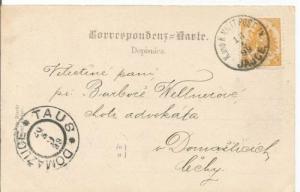 Correspondenz-Karte.
Dopisnica.
K.UND K. MILIT. POST
JAJCE
Velectěné paní
pí Barboře Wellnerové
choť advokáta
v Domažlicích
Čechy
TAUS
DOMAŽLICE